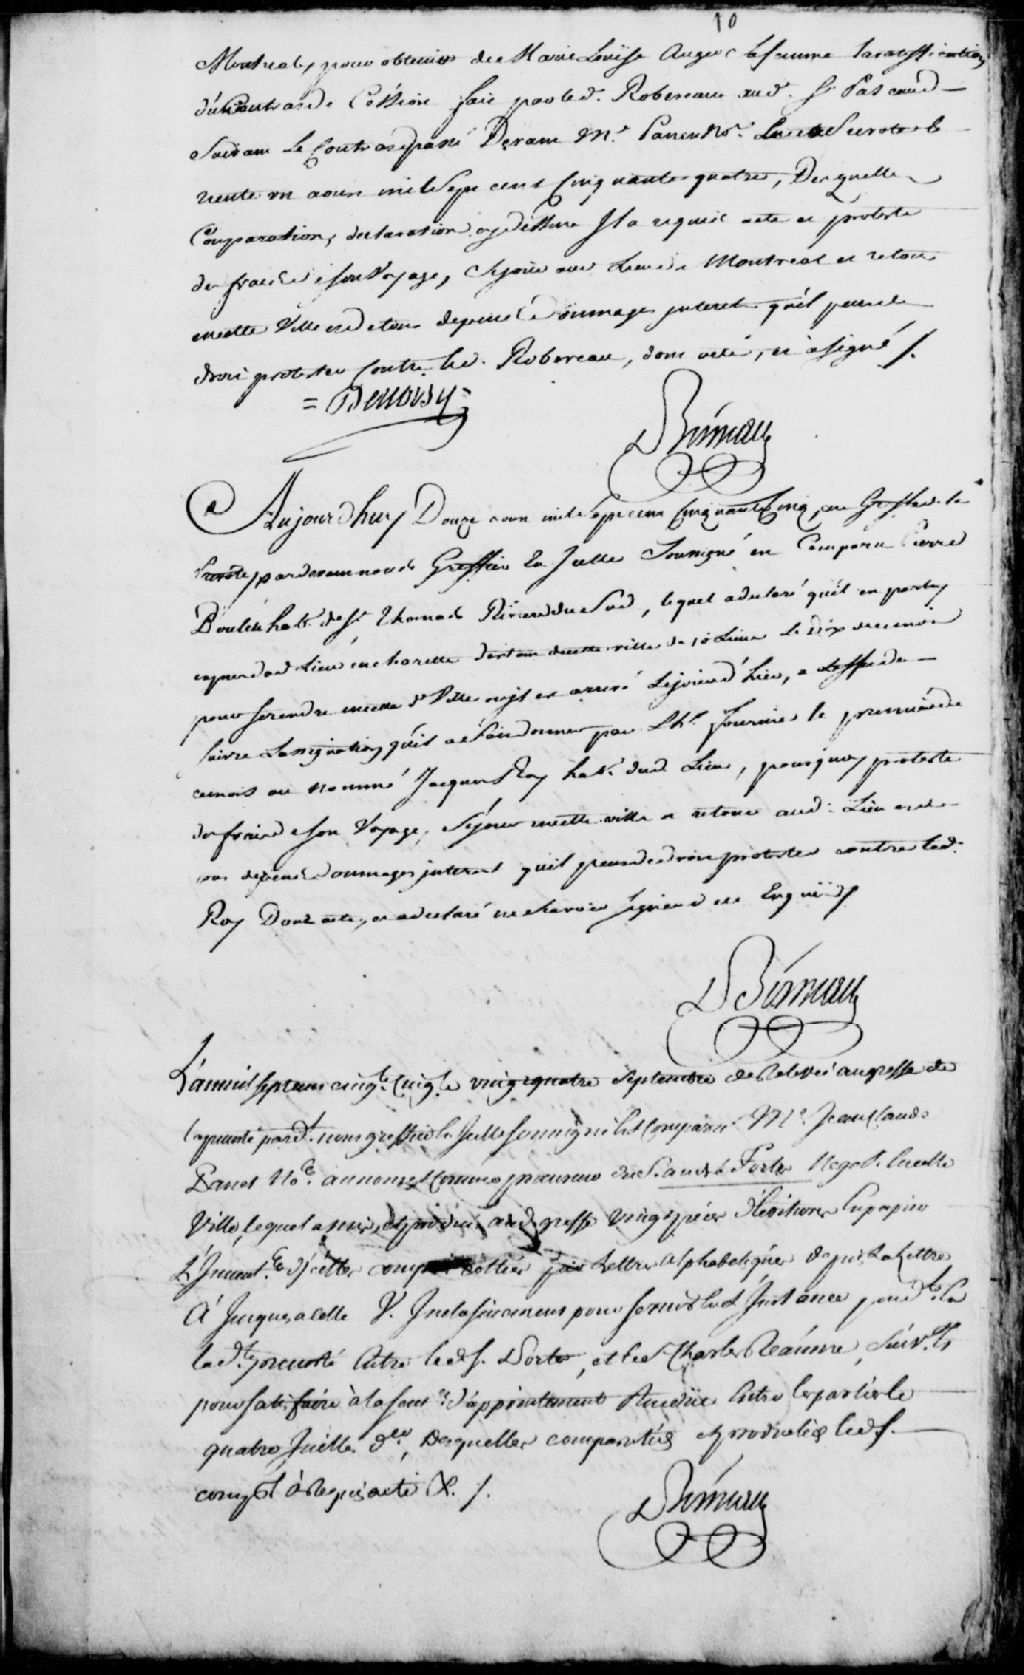 10
Montreal, pour obtenir de Marie Louise Auger sa femme la ratiffication
du Contrat de Cession fait par led. Robereau aud. Sr Pascaud
Suivant Le Contrat passé Devant Me. Panet Nore. En cette Prevoté le
trente un aoust mil Sept cent Cinquante quatre, Desquelles
Comparation, declaration cy dessus Il a requis acte et proteste
des frais de son Voyage, Sejour aud. lieu de Montreal et retour
en cette Ville et de tous depens Dommages interets qu'il peut de
droit protester Contre led. Robereau, dont acte, et a signé /.
= Decoisy =
DBéríau
Aujourd'huy Douze aoust mil Sept cent Cinquante Cinq, au Greffe de la
Prevoté, pardevant nous Greffier En Icelle Soussigné est Comparu Pierre
Boulé habt. de St. Thomas Riviere du Sud, lequel a declaré qu'il est party
exprés dud Lieu en charette distant de cette ville de 10 Lieues Le dix du present
pour se rendre en cette de Ville où il est arrivé Le jour d'hier, a L'effet de
suivre L'assignation qu'il a fait donner par Ls. Fournier le premier de
ce mois au nommé Jacques Roy habt. dud Lieu, pourquoy proteste
des frais de son Voyage, Séjour en cette ville et retour aud. Lieu et de
tous depens Dommages interest qu'il peut de droit protester contre led.
Roy Dont acte, et a declaré ne sçavoir signer de ce Enquis /
DBéríau
L'an mil sept cent cinqte. Cinq, le vingt quatre Septembre de Relevée au greffe de
la prevoté pard.t nous greffier d'Icelle soussigné Est Comparu Me. Jean Claude
Panet Nore. au nom Et Comme procureur du S. André Porter Negot. En cette
Ville, lequel a mis, Et produit aud. greffe Vingt pieces d'Ecritures En papier
L'Invent.re d'icelles compris Cottées par Lettres alphabetiques depuis La Lettre
A Jusques a celle V. Inclusivement pour servir En L'Instance pend.te En
lad.te prevoté Entre led. S. Porter, et led S. Charles Réaume, suiv.t Et
pour satisfaire à la sent.ce d'appointement Rendüe Entre les parties le
quatre Juillet d.er, Desquelles comparution Et production led S.
comp.t a Requis acte &. /.
DBéríau